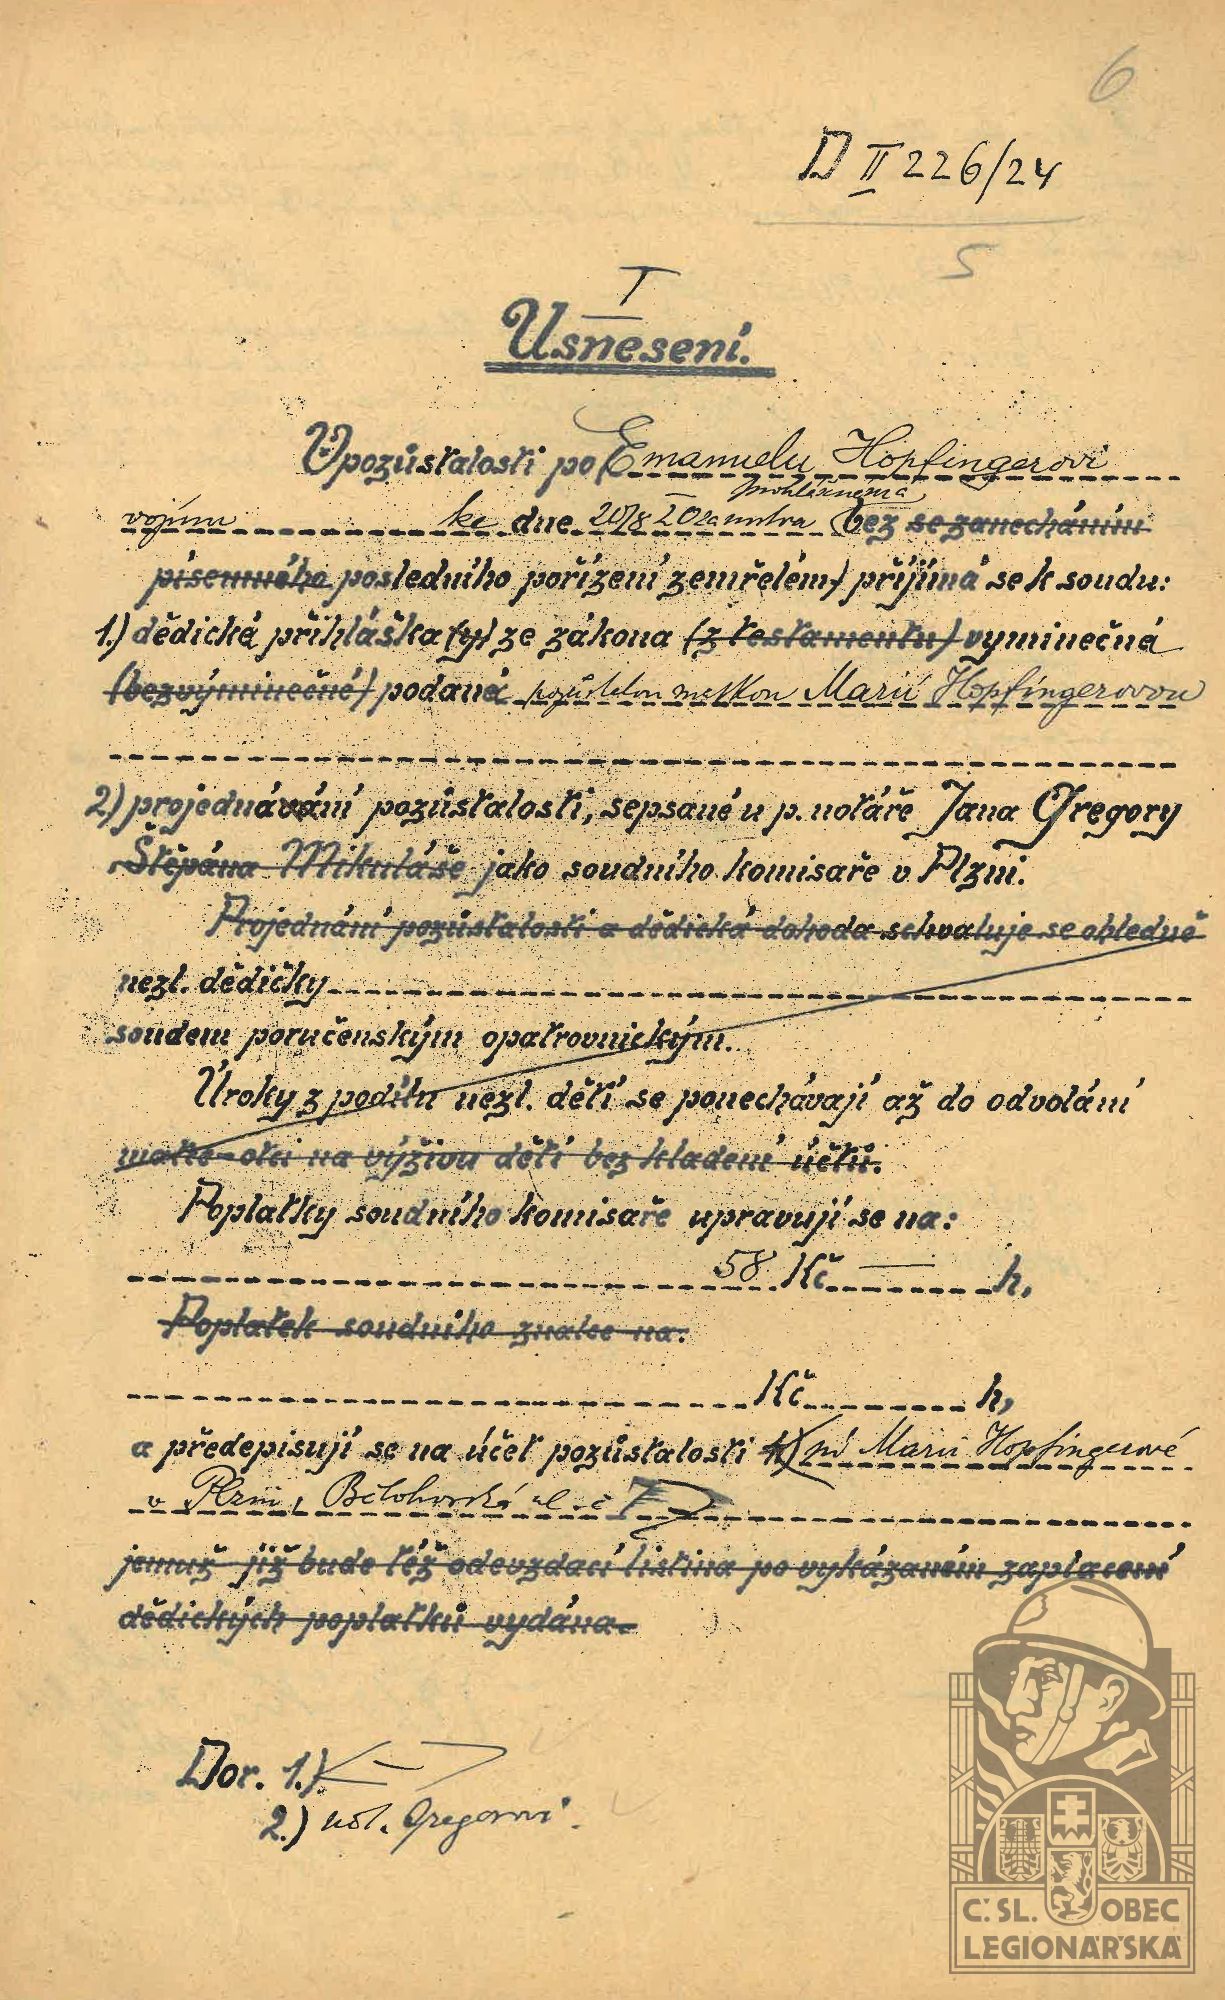 6
D II 226/24
5
I
Usnesení.
V pozůstalosti po Emanuelu Höpfingerovi
prohlášeném za
vojínu ke dne 20/8 1920 mrtva bez se zanecháním
písemného posledního pořízení zemřelém) přijímá se k soudu:
1.) dědická přihláška (y) ze zákona (z testamentu) výminečná
(bezvýminečné) podaná pozůstalou matkou Marií Hopfingerovou
2.) projednávání pozůstalosti, sepsané u p. notáře Jana Gregory
Štěpána Mikuláše jako soudního komisaře v Plzni.
Projednání pozůstalosti a dědická dohoda schvaluje se ohledně
nezl. dědičky
soudem poručenským opatrovnickým.
Úroky z podílu nezl. dětí se ponechávají až do odvolání
matce-otci na výživu dětí bez kladení účtů.
Poplatky soudního komisaře upravují se na:
58 Kč — h,
Poplatek soudního znalce na:
Kč h,
a předepisují se na účet pozůstalosti Marii Hopfingerové
v Plzni, Bělohorská ul. č
jemuž již bude též odevzdací listina po vykázaném zaplacení
dědických poplatků vydána.
Dor. 1.)
2.) not. Gregorovi.
Č. SL. OBEC
LEGIONÁŘSKÁ